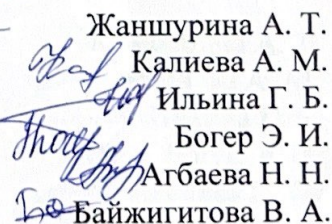 Жаншурина А. Т.
Калиева А. М.
Ильина Г. Б.
Богер Э. И.
Агбаева Н. Н.
Байжигитова В. А.